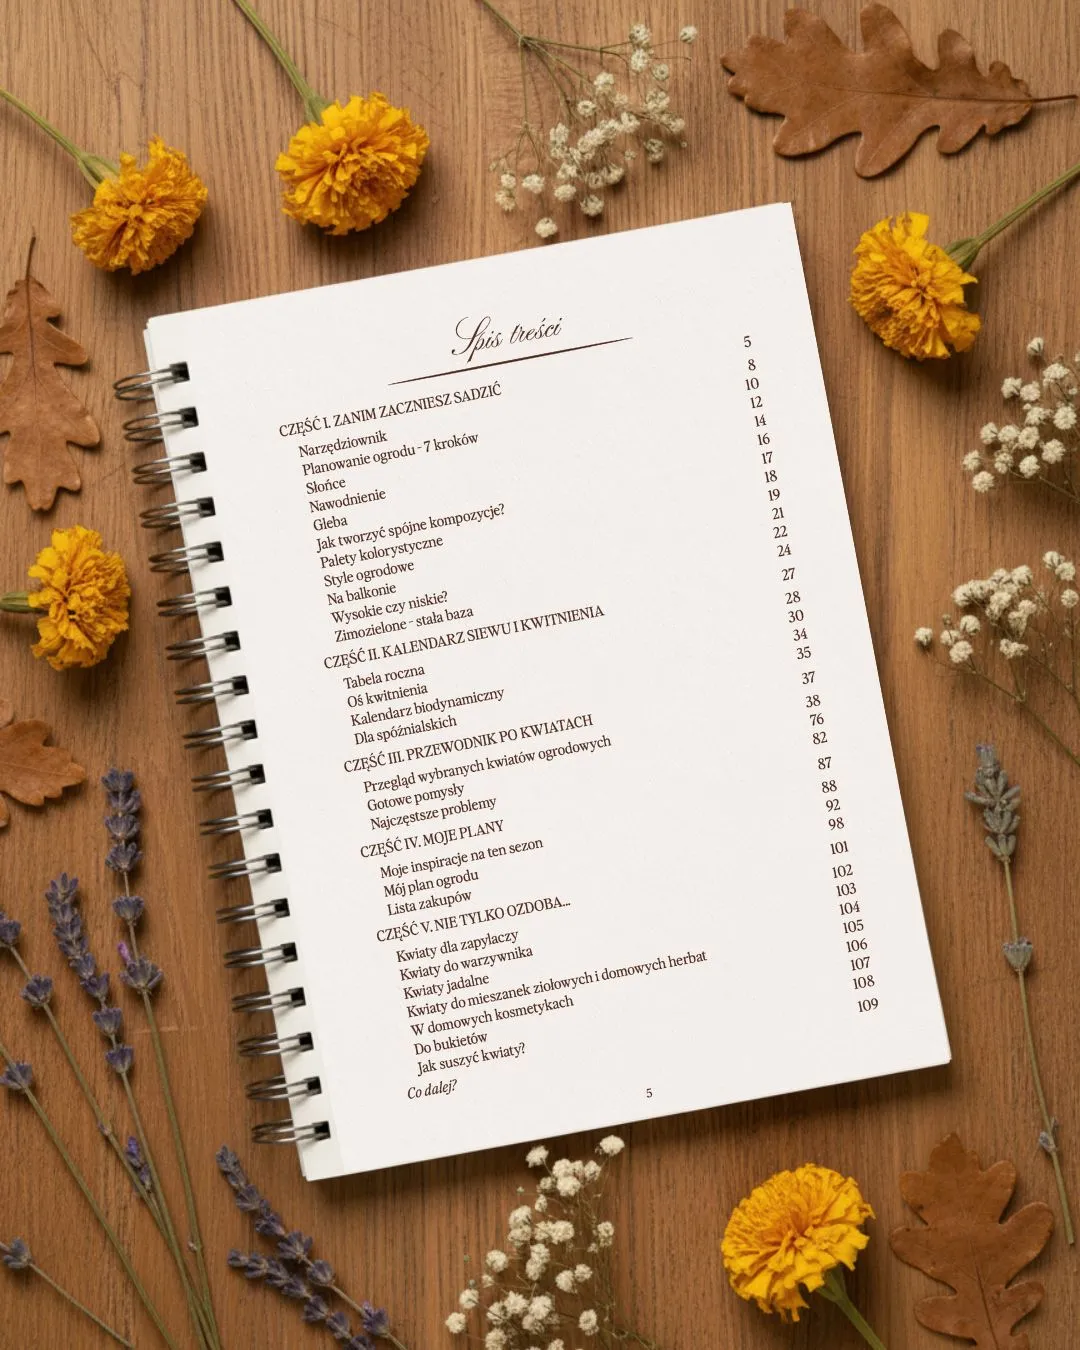 Spis treści
CZĘŚĆ I. ZANIM ZACZNIESZ SADZIĆ 5
Narzędziownik 8
Planowanie ogrodu - 7 kroków 10
Słońce 12
Nawodnienie 14
Gleba 16
Jak tworzyć spójne kompozycje? 17
Palety kolorystyczne 18
Style ogrodowe 19
Na balkonie 21
Wysokie czy niskie? 22
Zimozielone - stała baza 24
CZĘŚĆ II. KALENDARZ SIEWU I KWITNIENIA 27
Tabela roczna 28
Oś kwitnienia 30
Kalendarz biodynamiczny 34
Dla spóźnialskich 35
CZĘŚĆ III. PRZEWODNIK PO KWIATACH 37
Przegląd wybranych kwiatów ogrodowych 38
Gotowe pomysły 76
Najczęstsze problemy 82
CZĘŚĆ IV. MOJE PLANY 87
Moje inspiracje na ten sezon 88
Mój plan ogrodu 92
Lista zakupów 98
CZĘŚĆ V. NIE TYLKO OZDOBA... 101
Kwiaty dla zapylaczy 102
Kwiaty do warzywnika 103
Kwiaty jadalne 104
Kwiaty do mieszanek ziołowych i domowych herbat 105
W domowych kosmetykach 106
Do bukietów 107
Jak suszyć kwiaty? 108
Co dalej? 109
5